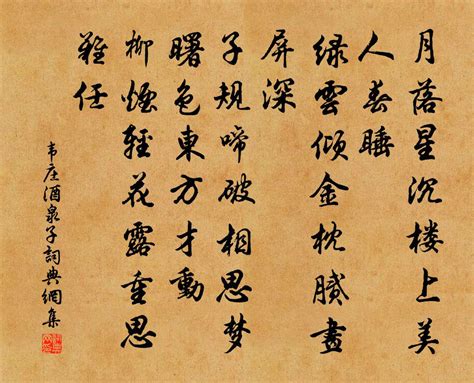 月落星沉楼上美
人春睡
绿雲倾金枕腻畫
屏深
子規啼破相思梦
曙色東方才動
柳煙輕花露重思
難任
韦庄酒泉子詞典網集